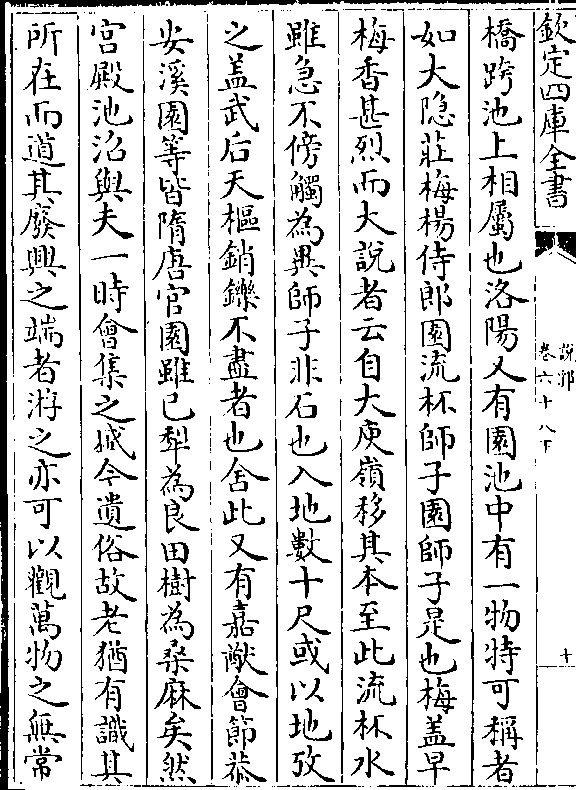 欽定四庫全書
說郛
卷六十八下
十
橋跨池上相屬也洛陽又有園池中有一物特可稱者
如大隱莊梅楊侍郎園流杯師子園師子是也梅盖早
梅香甚烈而大說者云自大庾嶺移其本至此流杯水
雖急不傍觸為異師子非石也入地數十尺或以地攷
之盖武后天樞銷鑠不盡者也舍此又有嘉猷會節恭
安溪園等皆隋唐官園雖已犁為良田樹為桑麻矣然
宫殿池沼與夫一時會集之城今遺俗故老猶有識其
所在而道其廢興之端者游之亦可以觀萬物之無常